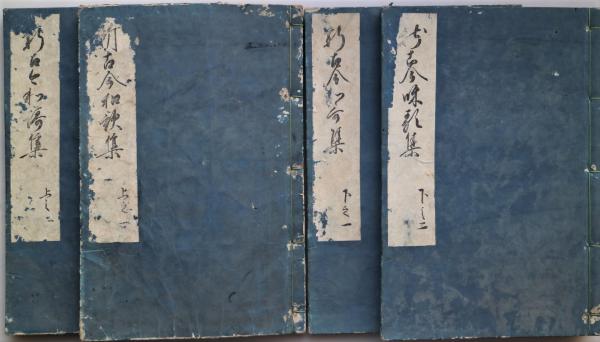 新古今和歌集 下之二
新古今和歌集 下之一
新古今和歌集 上之一
新古今和哥集 上之二